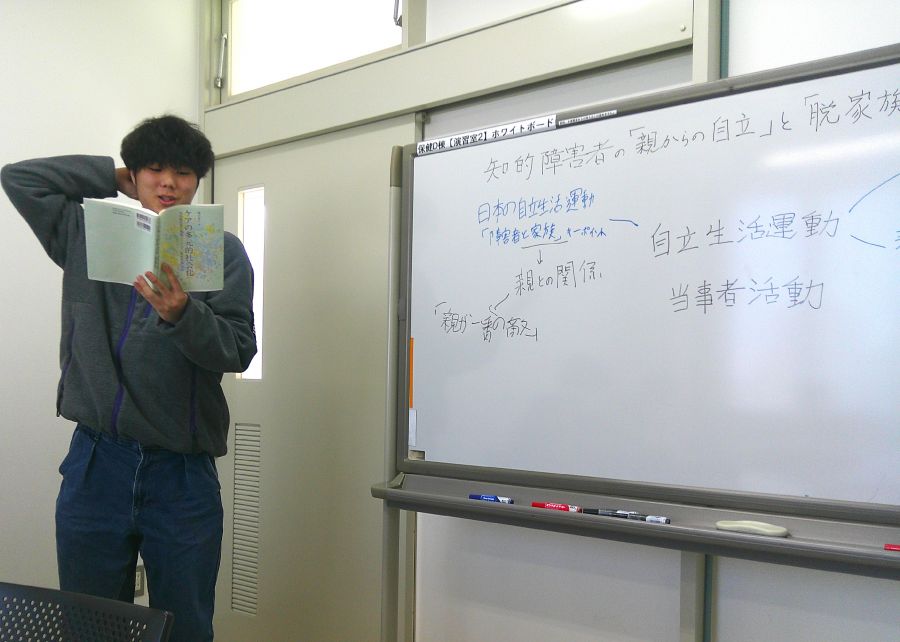 保健D棟【演習室2】ホワイトボード
知的障害者の「親からの自立」と「脱家族
日本の自立生活運動
「「障害者と家族」キーポイント
↓
親との関係
「親が一番の敵」
自立生活運動
当事者活動
ケアの多元的社会化